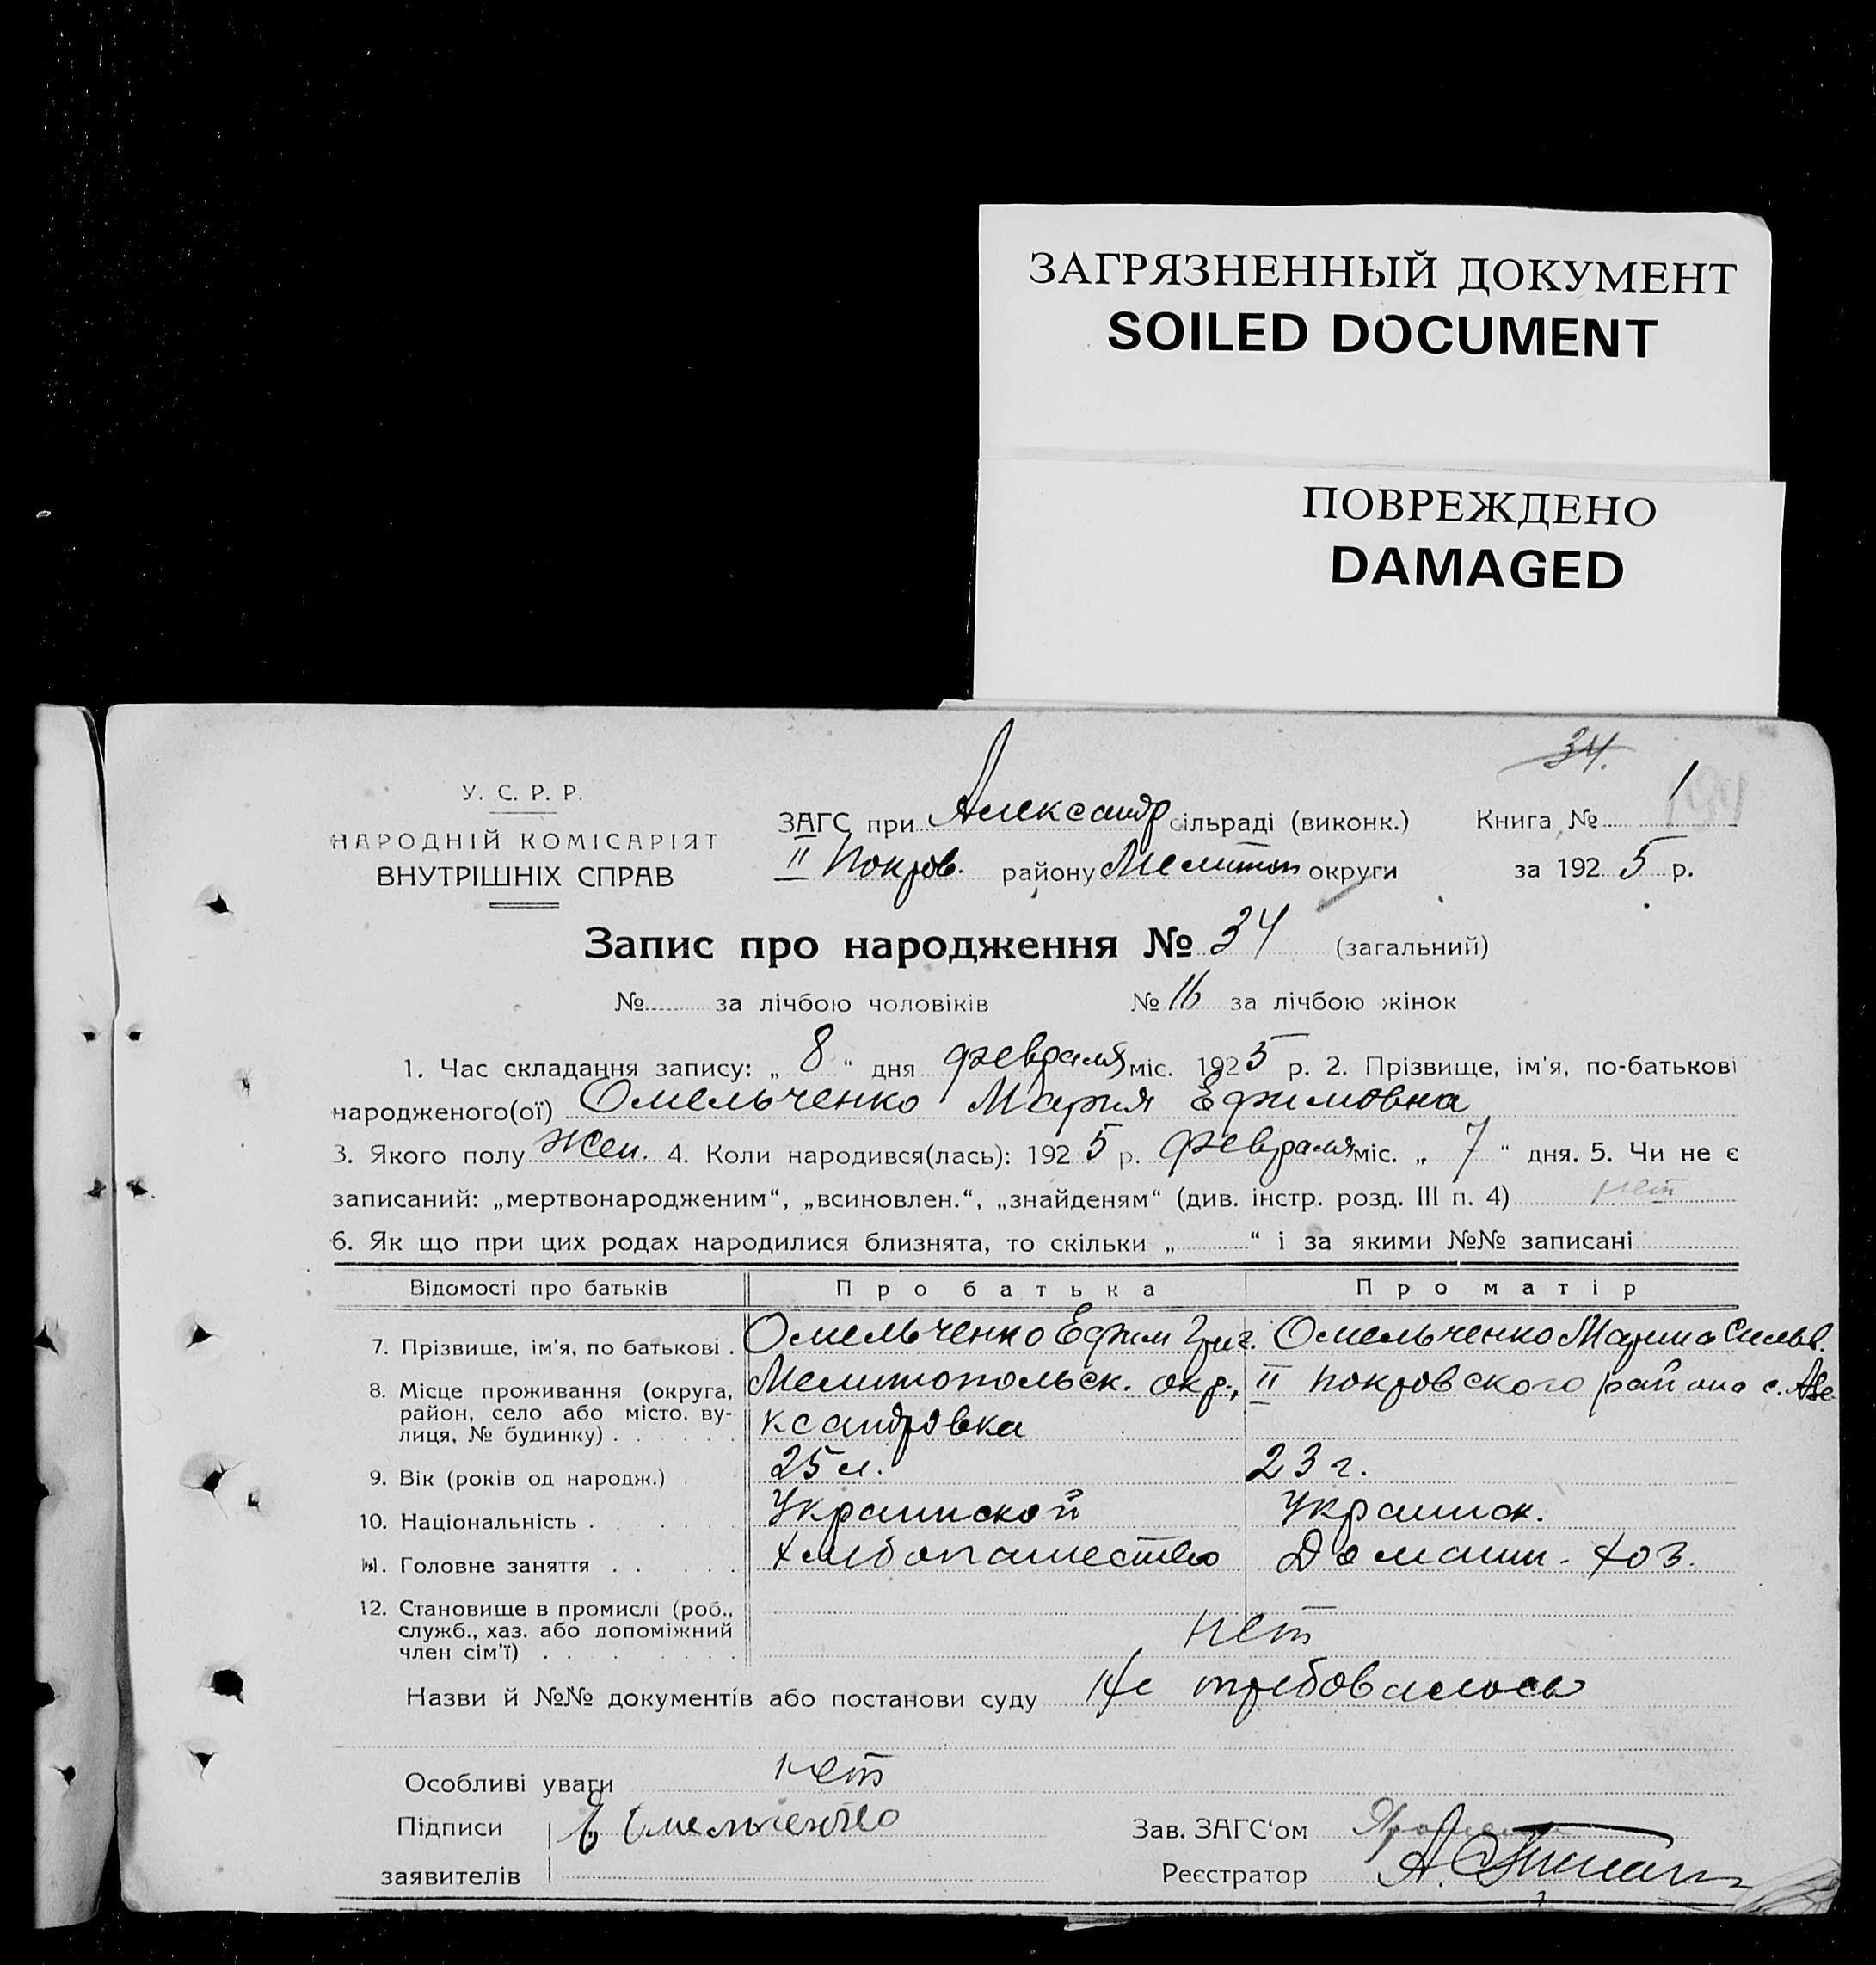 ЗАГРЯЗНЕННЫЙ ДОКУМЕНТ
SOILED DOCUMENT
ПОВРЕЖДЕНО
DAMAGED
34.
У. С. Р. Р.
НАРОДНІЙ КОМІСАРІЯТ
ВНУТРІШНІХ СПРАВ
ЗАГС при Александр сільраді (виконк.) Книга № 1
II Покров. району Мелитоп округи за 1925 р.
Запис про народження № 34 (загальний)
№ за лічбою чоловіків № 16 за лічбою жінок
1. Час складання запису: „ 8 “ дня февраля міс. 1925 р. 2. Прізвище, ім'я, по-батькові
народженого(ої) Омельченко Мария Ефимовна
3. Якого полу Жен. 4. Коли народився(лась): 1925 р. февраля міс. „ 7 “ дня. 5. Чи не є
записаний: „мертвонародженим“, „всиновлен.“, „знайденям“ (див. інстр. розд. III п. 4) нет
6. Як що при цих родах народилися близнята, то скільки „ “ і за якими №№ записані
Відомості про батьків Про батька Про матір
7. Прізвище, ім'я, по батькові . Омельченко Ефим Григ. Омельченко Марина Сильв.
8. Місце проживання (округа, район, село або місто, вулиця, № будинку) . Мелитопольск. окр., II Покровского района с. Але
ксандровка
9. Вік (років од народж.) . 25 л. 23 г.
10. Національність . Украинской Украинск.
11. Головне заняття . Хлебопашество Домашн. хоз.
12. Становище в промислі (роб., служб., хаз. або допоміжний член сім'ї) . нет
Назви й №№ документів або постанови суду Не требовалось
Особливі уваги нет
Підписи Е Омельченко Зав. ЗАГС‘ом
заявителів Реєстратор